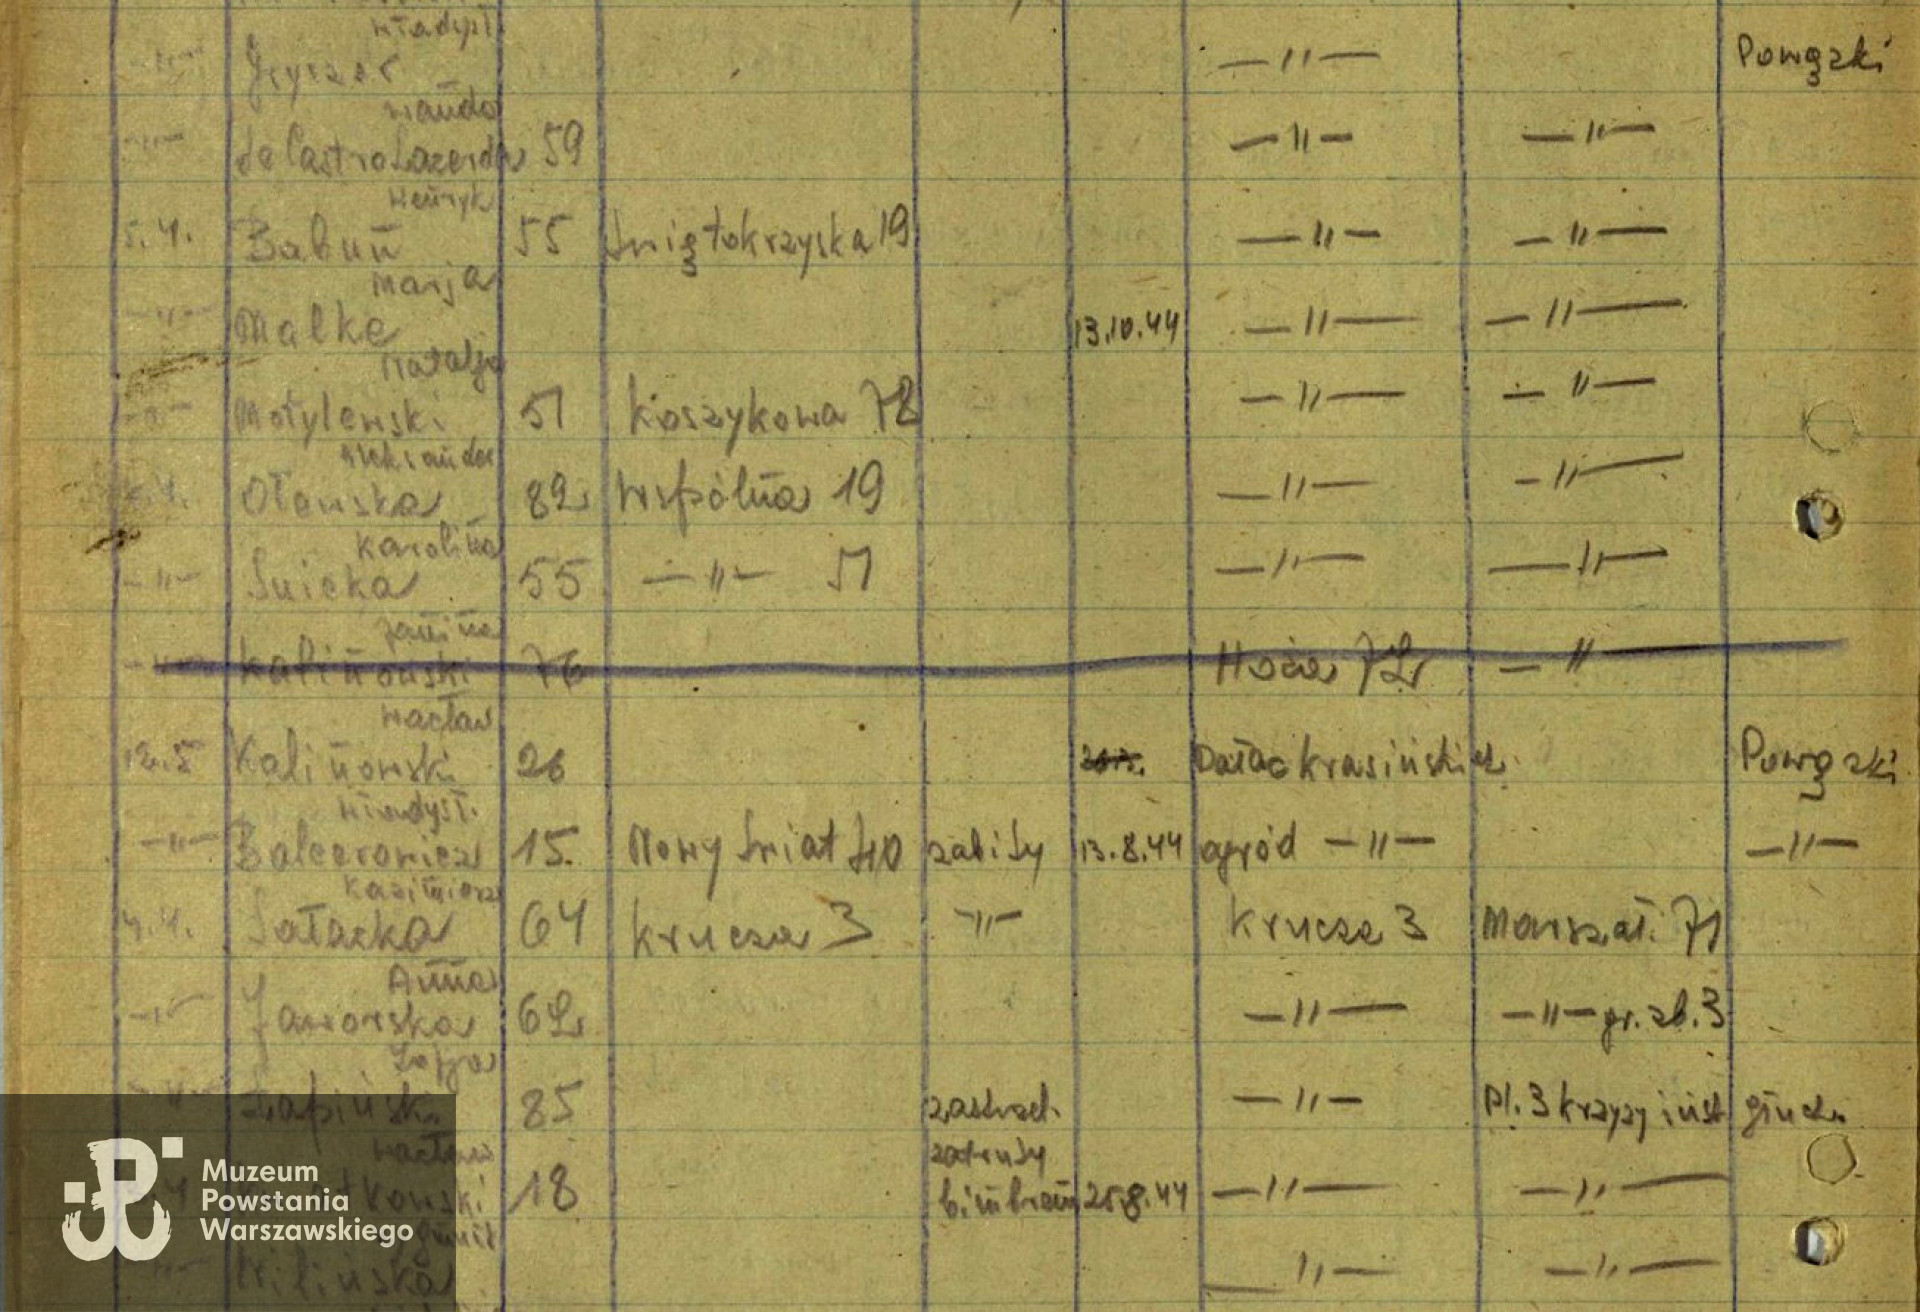 Władysł.
—"— Gryczer —"— Powązki
Wanda
—"— de Castro Lacerda 59 —"— —"—
Henryk
5.4. Babuń 55 Swiętokrzyska 19 —"— —"—
Marja
—"— Malke 13.10.44 —"— —"—
Natalja
—"— Motylewski 51 Koszykowa 78 —"— —"—
Aleksander
Ołewska 82 Wspólna 19 —"— —"—
Karolina
—"— Suicka 55 —"— 51 —"— —"—
Janina
—"— Kalinowski 76 Hoża 72 —"
Wacław
12.5 Kalinowski 26 Pałac Krasińskich Powązki
Władysł.
—"— Balcerowicz 15. Nowy Swiat 40 zabity 13.8.44 ogród —"— —"—
Kazimierz
4.4. Sałacka 64 Krucza 3 —"— Krucza 3 Marszał. 71
Anna
—"— Jaworska 62 —"— —"— gr. zb. 3
Zofja
—"— Łapiński 85 zastrzel. —"— Pl. 3 krzyży inst głuch.
Wacław zatruty
18 bimbrem 25.8.44 —"— —"—
—"— Wilińska —"— —"—
Muzeum
Powstania
Warszawskiego